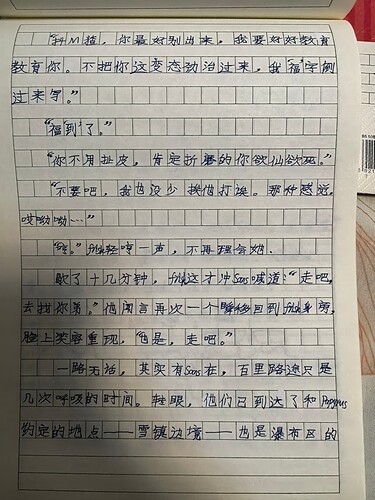 "抖M猫，你最好别出来，我要好好教育
教育你。不把你这变态劲治过来，我"福"字倒
过来写。"
"福'到'了。"
"你不用扯皮，肯定折磨的你欲仙欲死。"
"不要吧，我也没少挨借打诶。那种感觉，
哎呦呦……"
"哼。"轻哼一声，不再理会她。
歇了十几分钟，这才冲Soos喊道："走吧，
去找你弟。"他闻言再次一个瞬移回到身旁，
脸上笑容重现，"也是，走吧。"
一路无话，其实有Soos在，百里路途只是
几次呼吸的时间。转眼，他们已到达了和
约定的地点——雪镇边境——也是瀑布区的